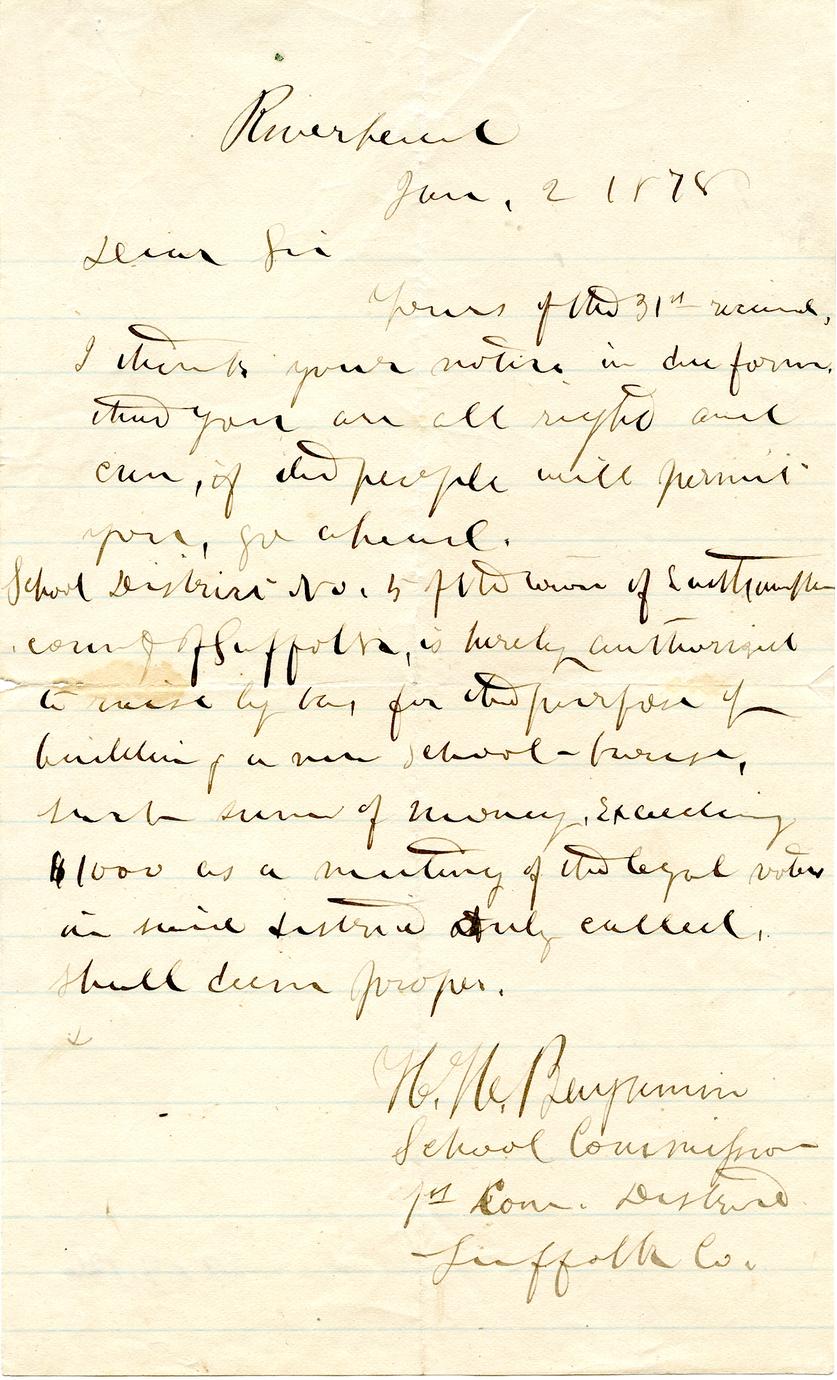 Riverhead
Jan. 2 1878
Dear Sir
Yours of the 31st received,
I think your notice in due form.
that you are all right and
can, if the people will permit
you, go ahead.
School District No. 5 of the town of Southampton
county of Suffolk, is hereby authorized
to raise by tax for the purpose of
building a new school-house,
such sum of money, exceeding
$1000 as a meeting of the legal voters
in said district duly called,
shall deem proper.
H. H. Benjamin
School Commissioner
1st Com. District
Suffolk Co.